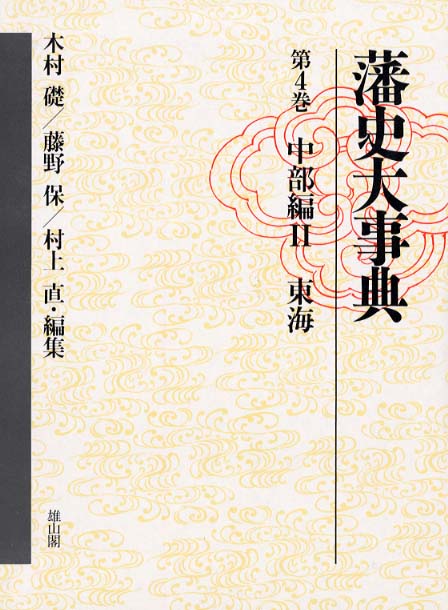 藩史大事典
第4巻 中部編II 東海
木村 礎／藤野 保／村上 直・編集
雄山閣